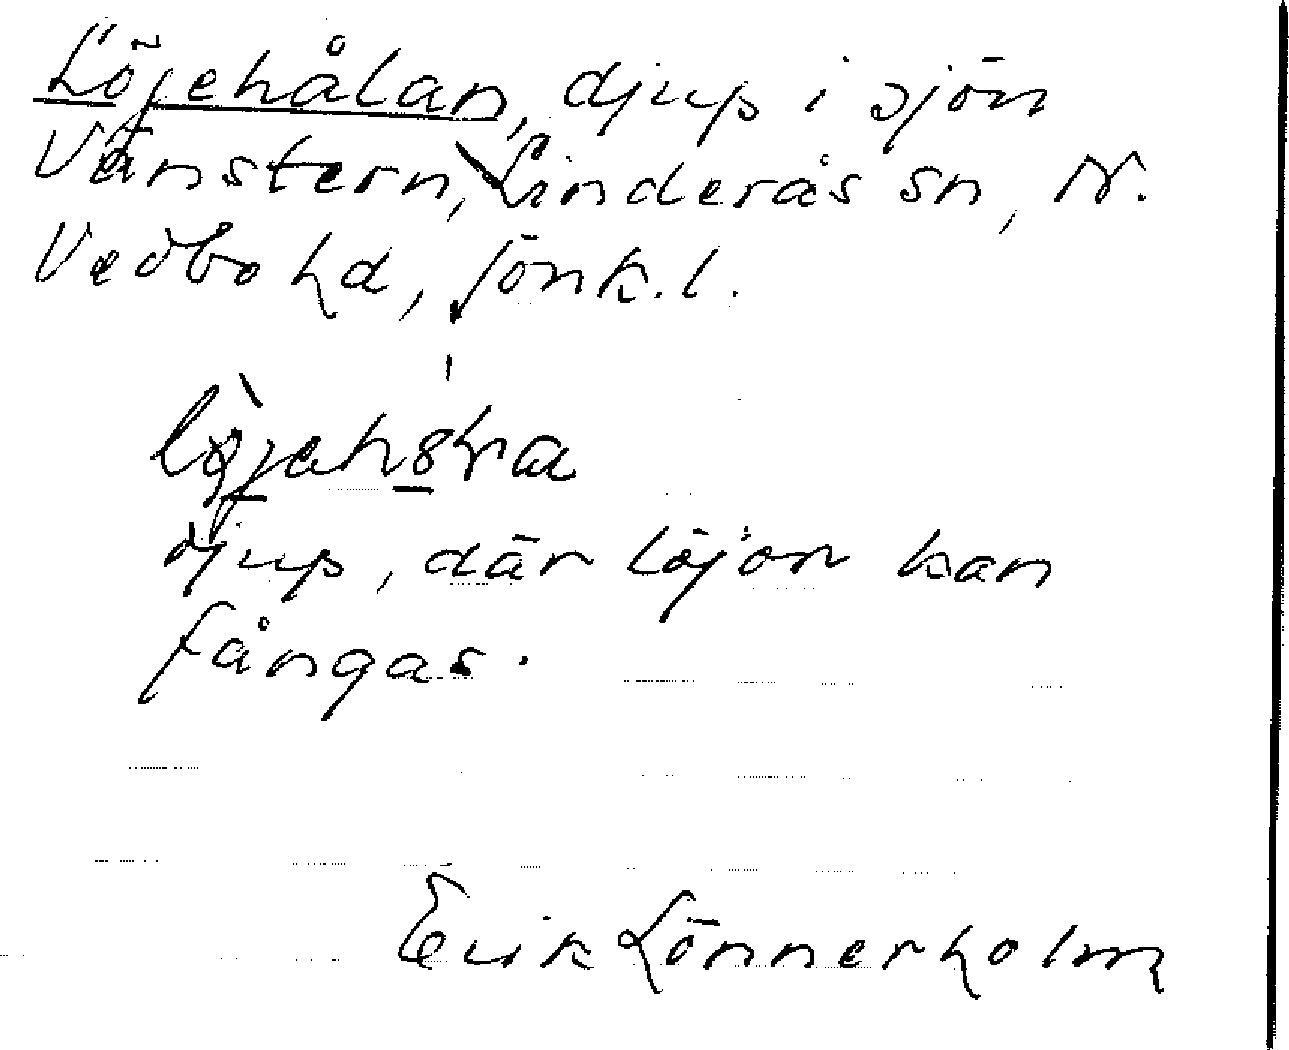 Löjehålan, djup i sjön
Vänstern, Linderås sn, N.
Vedbo hd, Jönk.l.
djup, där löjor kan
fångas.
Erik Lönnerholm